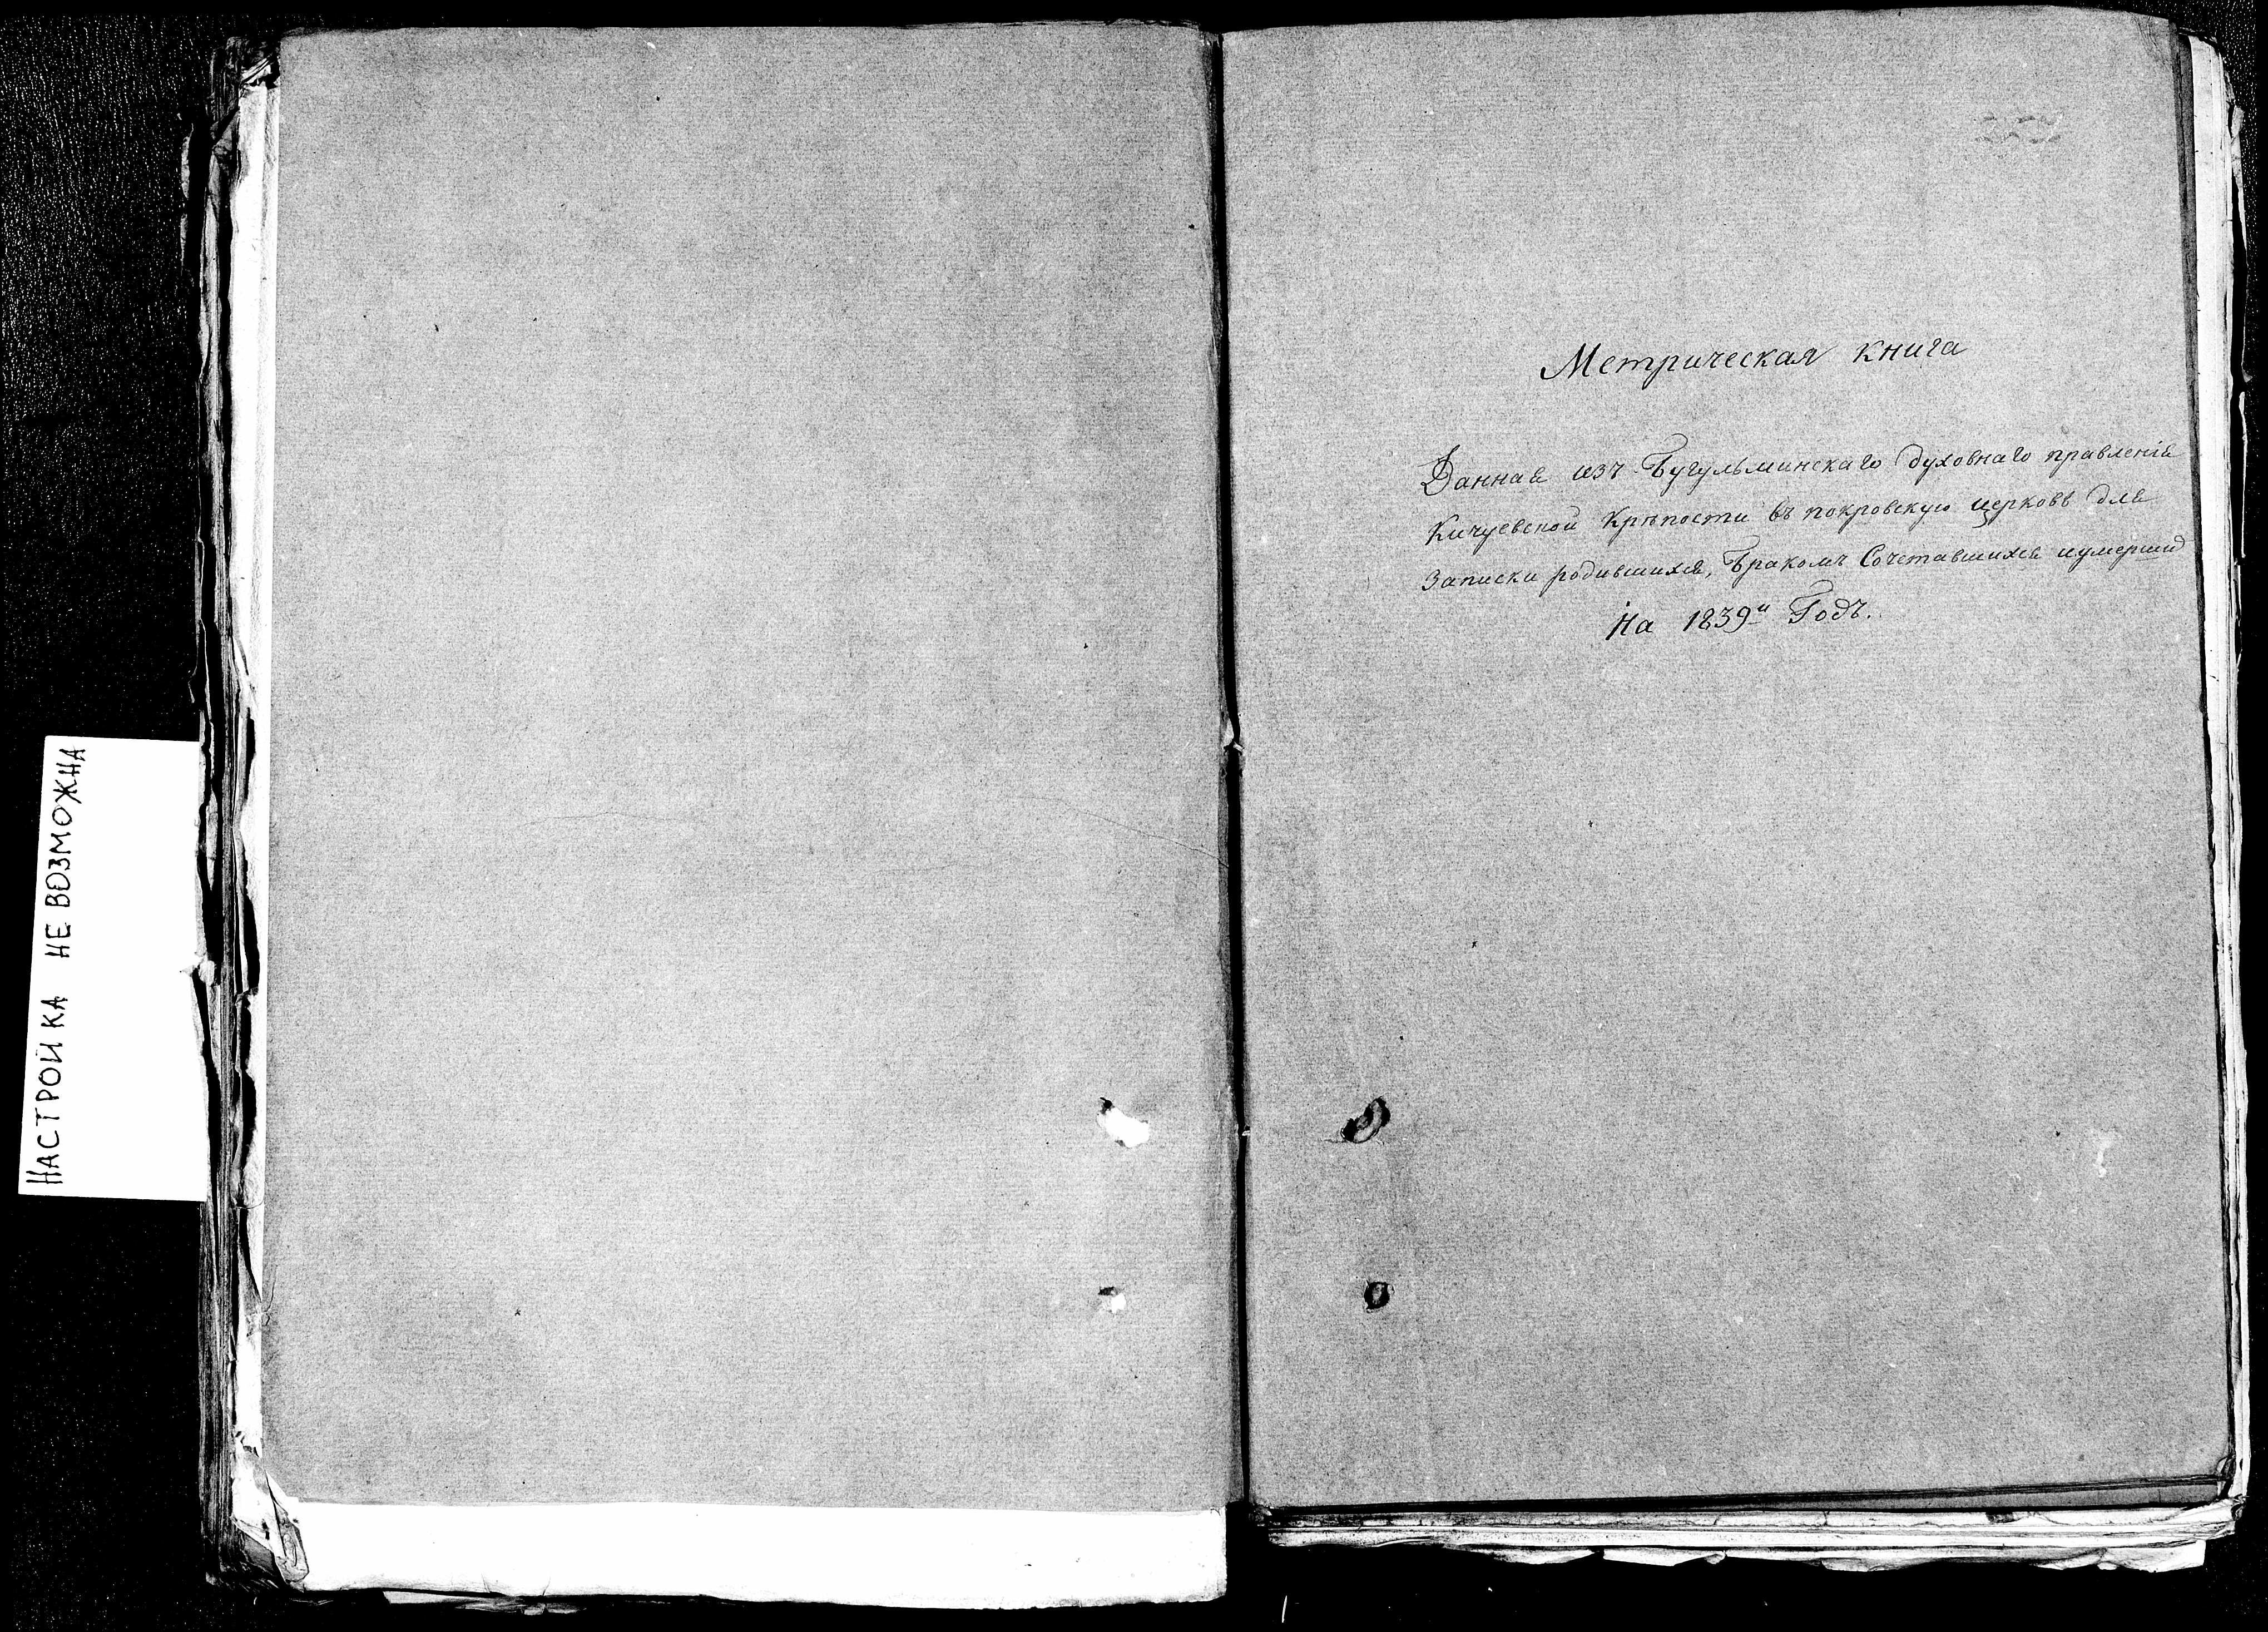 НАСТРОЙКА НЕ ВОЗМОЖНА
Метрическая книга
Данная изъ Бугульминскаго духовнаго правленія
Кичуевской крѣпости въ покровскую церковь для
Записки родившихся, Бракомъ Сочетавшихся иумерших
На 1839й Годъ.